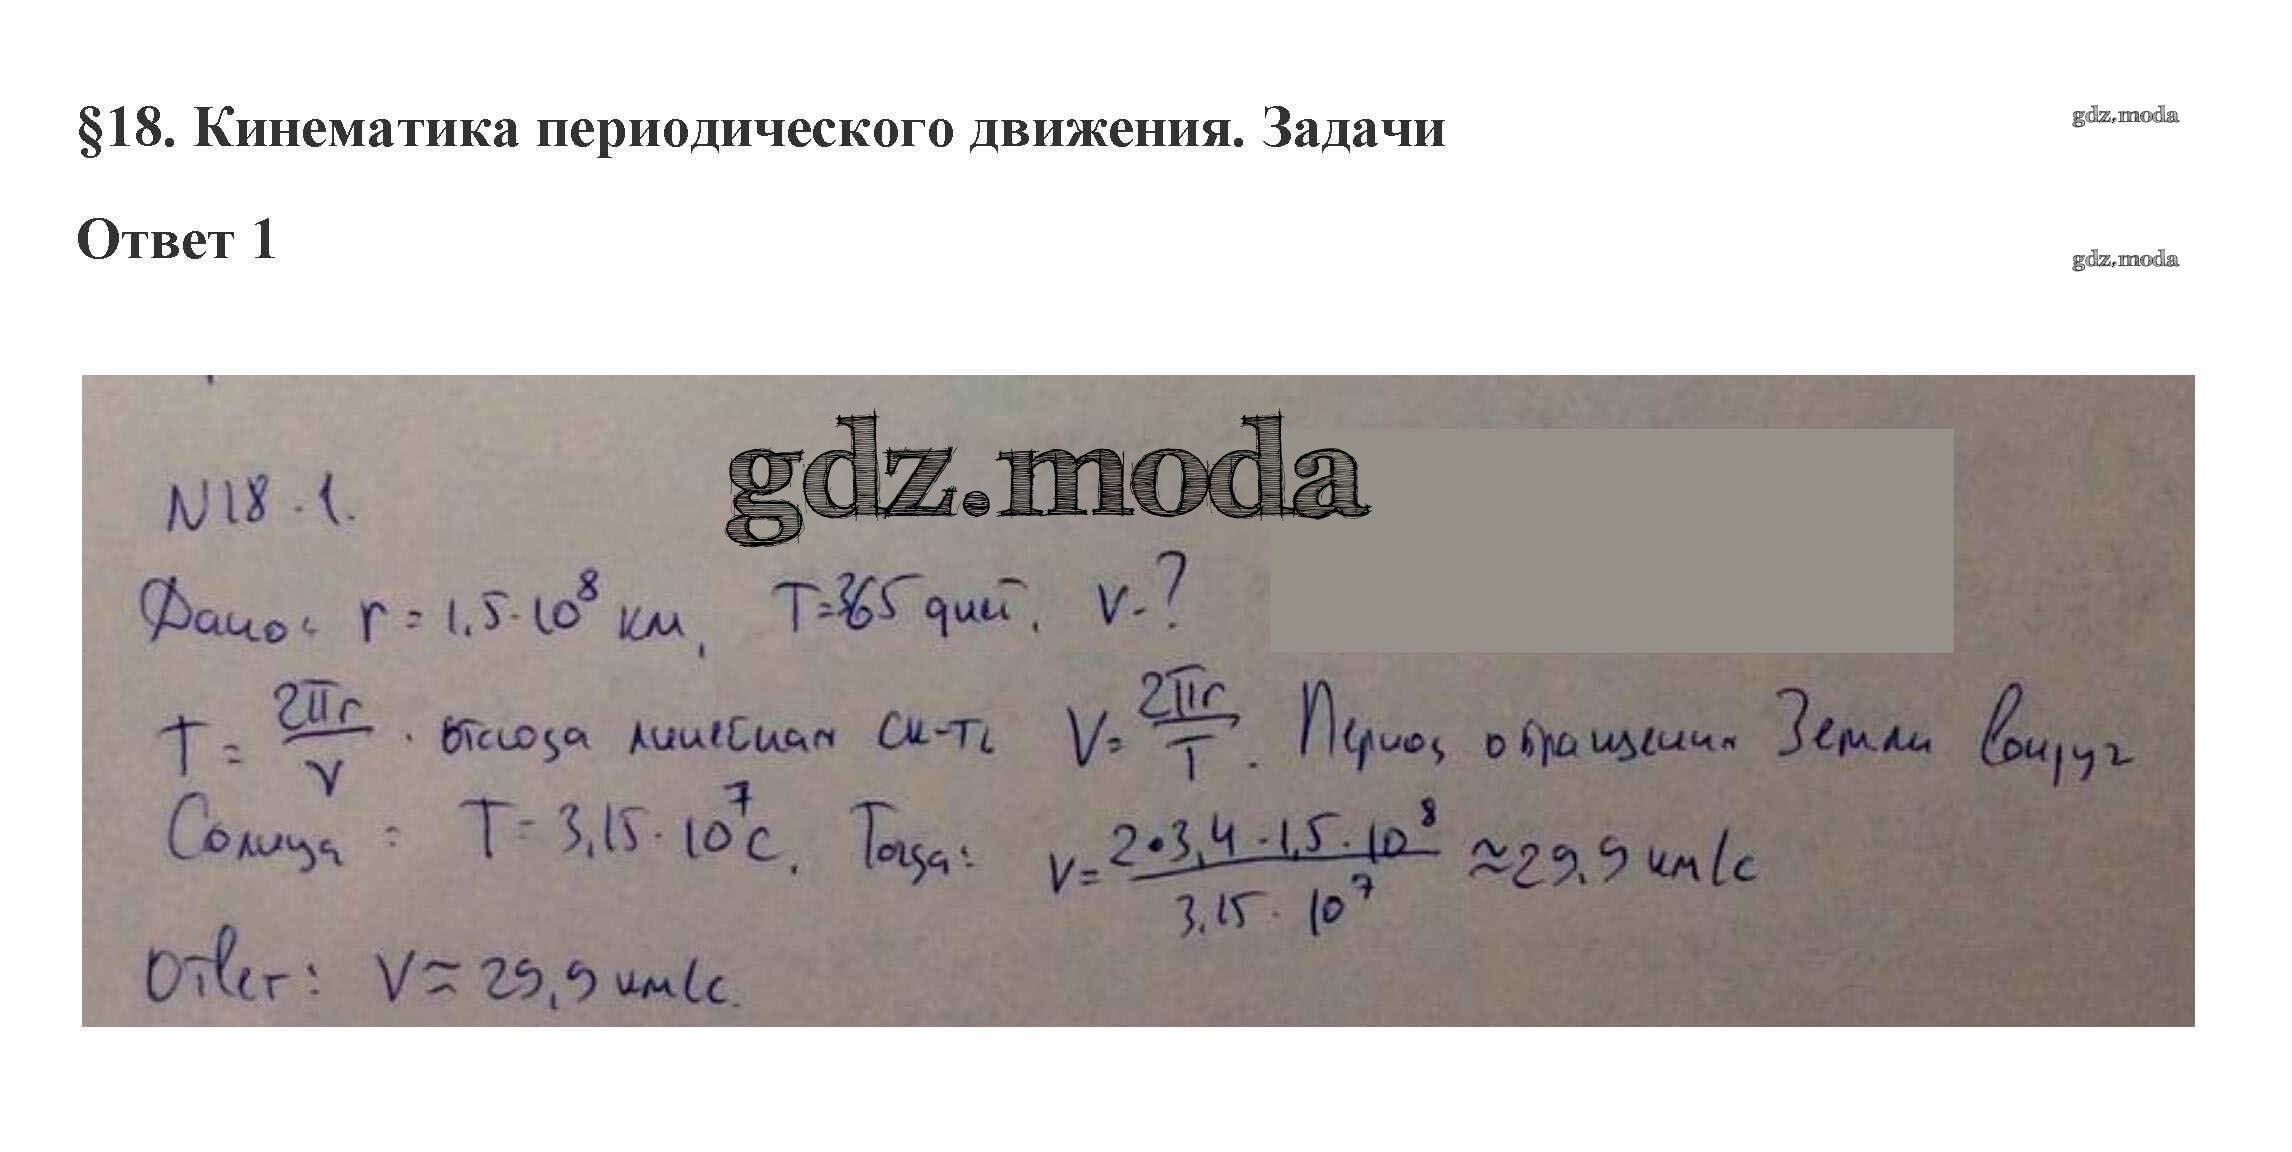 §18. Кинематика периодического движения. Задачи
gdz.moda
Ответ 1
gdz.moda
gdz.moda
N18.1.
Дано: r = 1,5·10⁸ км, T=365 дней. v-?
T = 2πr/v. отсюда линейная ск-ть V = 2πr/T. Период обращения Земли вокруг
Солнца: T = 3,15·10⁷с. Тогда: v = 2•3,4·1,5·10⁸/3,15·10⁷ ≈29,9 км/с
Ответ: V ≈ 29,9 км/с.